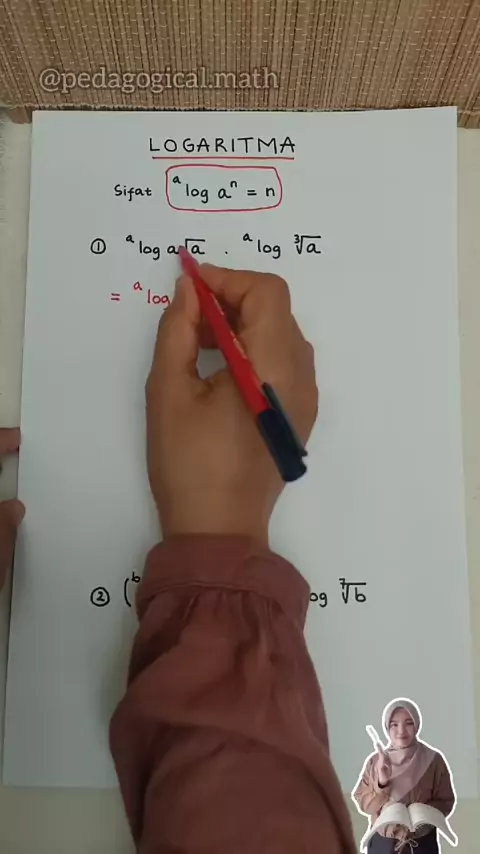 @pedagogical.math
LOGARITMA
Sifat ᵃlog aⁿ = n
① ᵃlog a√a . ᵃlog ∛a
= ᵃlog
② (ᵇ og ⁷√b